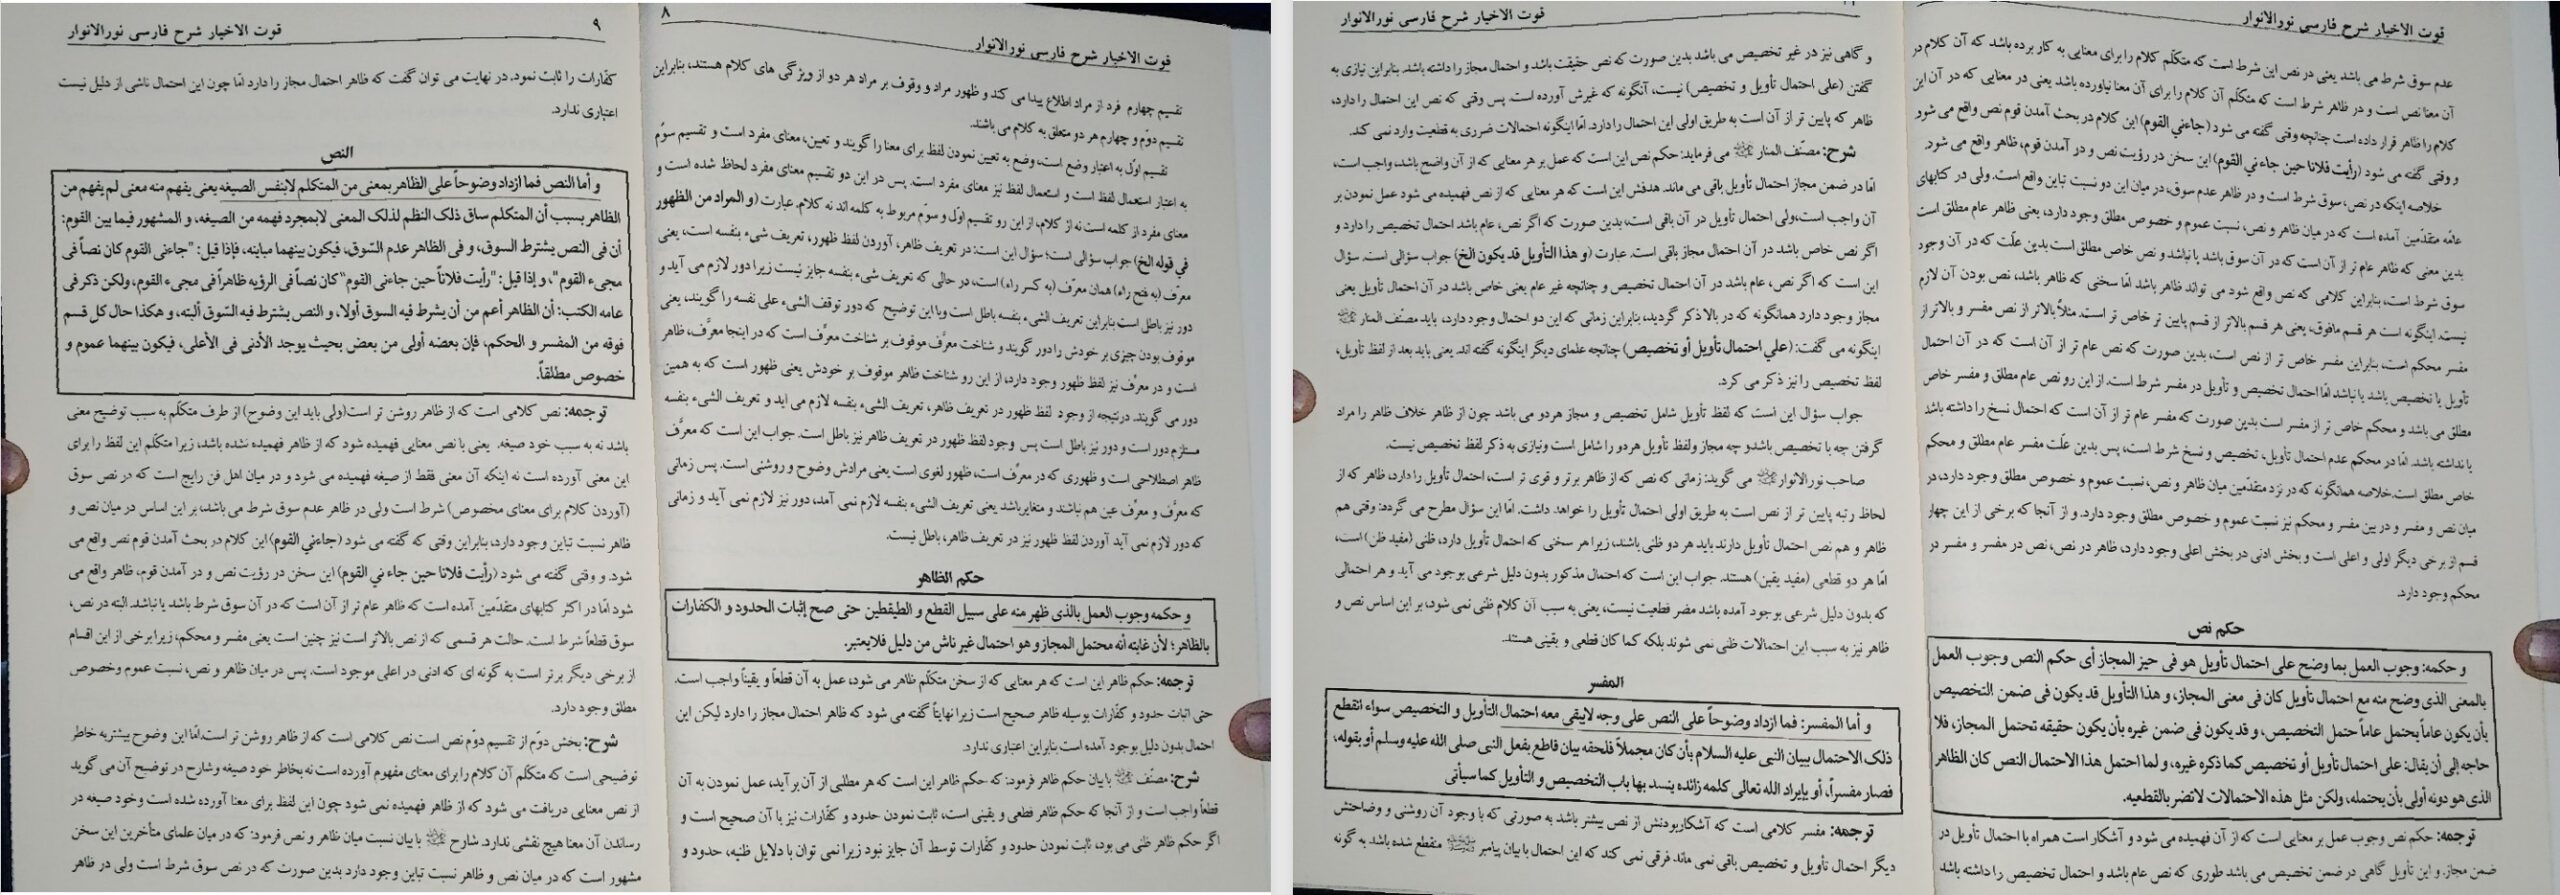 ۸
قوت الاخیار شرح فارسی نورالانوار
تقسیم چهارم فرد از مراد اطلاع پیدا می کند و ظهور مراد و وقوف بر مراد هر دو از ویژگی های کلام هستند، بنابراین
تقسیم دوّم و چهارم هر دو متعلق به کلام می باشند.
تقسیم اوّل به اعتبار وضع است، وضع به تعیین نمودن لفظ برای معنا را گویند و تعین، معنای مفرد است و تقسیم سوّم
به اعتبار استعمال لفظ است و استعمال لفظ نیز معنای مفرد است. پس در این دو تقسیم معنای مفرد لحاظ شده است و
معنای مفرد از کلمه است نه از کلام، از این رو تقسیم اوّل و سوّم مربوط به کلمه اند نه کلام. عبارت (و المراد من الظهور
في قوله الخ) جواب سؤالی است؛ سؤال این است: در تعریف ظاهر، آوردن لفظ ظهور، تعریف شیء بنفسه است، یعنی
معرّف (به فتح راء) همان معرّف (به کسر راء) است، در حالی که تعریف شیء بنفسه جایز نیست زیرا دور لازم می آید و
دور نیز باطل است بنابراین تعریف الشیء بنفسه باطل است وبا این توضیح که دور توقف الشیء علی نفسه را گویند، یعنی
موقوف بودن چیزی بر خودش را دور گویند و شناخت معرَّف موقوف بر شناخت معرِّف است که در اینجا معرَّف، ظاهر
است و در معرِّف نیز لفظ ظهور وجود دارد، از این رو شناخت ظاهر موقوف بر خودش یعنی ظهور است که به همین
دور می گویند. درنتیجه از وجود لفظ ظهور در تعریف ظاهر، تعریف الشیء بنفسه لازم می اید و تعریف الشیء بنفسه
مستلزم دور است و دور نیز باطل است پس وجود لفظ ظهور در تعریف ظاهر نیز باطل است. جواب این است که معرَّف
ظاهر اصطلاحی است و ظهوری که در معرِّف است، ظهور لغوی است یعنی مرادش وضوح و روشنی است. پس زمانی
که معرَّف و معرِّف عین هم نباشند و متغایرباشد یعنی تعریف الشیء بنفسه لازم نمی آمد، دور نیز لازم نمی آید و زمانی
که دور لازم نمی آید آوردن لفظ ظهور نیز در تعریف ظاهر، باطل نیست.
حکم الظاهر
و حکمه وجوب العمل بالذی ظهر منه علی سبیل القطع و الطیقطین حتی صح إثبات الحدود و الکفارات
بالظاهر؛ لأن غایته أنه محتمل المجاز و هو احتمال غیر ناش من دلیل فلایعتبر.
ترجمه: حکم ظاهر این است که هر معنایی که از سخن متکلّم ظاهر می شود، عمل به آن قطعاً و یقیناً واجب است.
حتی اثبات حدود و کفّارات بوسیله ظاهر صحیح است زیرا نهایتاً گفته می شود که ظاهر احتمال مجاز را دارد لیکن این
احتمال بدون دلیل بوجود آمده است بنابراین اعتباری ندارد.
شرح: مصنّف با بیان حکم ظاهر فرمود: که حکم ظاهر این است که هر مطلبی از آن بر آید، عمل نمودن به آن
قطعاً واجب است و از آنجا که حکم ظاهر قطعی و یقینی است، ثابت نمودن حدود و کفّارات نیز با آن صحیح است و
اگر حکم ظاهر ظنی می بود، ثابت نمودن حدود و کفّارات توسط آن جایز نبود زیرا نمی توان با دلایل ظنیه، حدود و
۹
قوت الاخیار شرح فارسی نورالانوار
کفّارات را ثابت نمود. در نهایت می توان گفت که ظاهر احتمال مجاز را دارد امّا چون این احتمال ناشی از دلیل نیست
اعتباری ندارد.
النص
و أما النص فما ازداد وضوحاً علی الظاهر بمعنی من المتکلم لابنفس الصیغه یعنی یفهم منه معنی لم یفهم من
الظاهر بسبب أن المتکلم ساق ذلک النظم لذلک المعنی لابمجرد فهمه من الصیغه، و المشهور فیما بین القوم:
أن فی النص یشترط السوق، و فی الظاهر عدم السّوق، فیکون بینهما مباینه، فإذا قیل: "جاءنی القوم کان نصاً فی
مجیء القوم"، و إذا قیل: "رأیت فلاناً حین جاءنی القوم" کان نصاً فی الرؤیه ظاهراً فی مجیء القوم، ولکن ذکر فی
عامه الکتب: أن الظاهر أعم من أن یشرط فیه السوق أولا، و النص یشترط فیه السّوق ألبته، و هکذا حال کل قسم
فوقه من المفسر و الحکم، فإن بعضه أولی من بعض بحیث یوجد الأدنی فی الأعلی، فیکون بینهما عموم و
خصوص مطلقاً.
ترجمه: نص کلامی است که از ظاهر روشن تر است(ولی باید این وضوح) از طرف متکلّم به سبب توضیح معنی
باشد نه به سبب خود صیغه. یعنی با نص معنایی فهمیده شود که از ظاهر فهمیده نشده باشد، زیرا متکلّم این لفظ را برای
این معنی آورده است نه اینکه آن معنی فقط از صیغه فهمیده می شود و در میان اهل فن رایج است که در نص سوق
(آوردن کلام برای معنای مخصوص) شرط است ولی در ظاهر عدم سوق شرط می باشد، بر این اساس در میان نص و
ظاهر نسبت تباین وجود دارد، بنابراین وقتی که گفته می شود (جاءني القوم) این کلام در بحث آمدن قوم نص واقع می
شود. و وقتی گفته می شود (رأیت فلانا حین جاء ني القوم) این سخن در رؤیت نص و در آمدن قوم، ظاهر واقع می
شود امّا در اکثر کتابهای متقدّمین آمده است که ظاهر عام تر از آن است که در آن سوق شرط باشد یا نباشد. البّته در نص،
سوق قطعاً شرط است. حالت هر قسمی که از نص بالاتر است نیز چنین است یعنی مفسر و محکم، زیرا برخی از این اقسام
از برخی دیگر برتر است به گونه ای که ادنی در اعلی موجود است. پس در میان ظاهر و نص، نسبت عموم وخصوص
مطلق وجود دارد.
شرح: بخش دوّم از تقسیم دوّم نص است نص کلامی است که از ظاهر روشن تر است.امّا این وضوح بیشتربه خاطر
توضیحی است که متکلّم آن کلام را برای معنای مفهوم آورده است نه بخاطر خود صیغه وشارح در توضیح آن می گوید
از نص معنایی دریافت می شود که از ظاهر فهمیده نمی شود چون این لفظ برای معنا آورده شده است وخود صیغه در
رساندن آن معنا هیچ نقشی ندارد. شارح با بیان نسبت میان ظاهر و نص فرمود: که در میان علمای متأخرین این سخن
مشهور است که در میان نص و ظاهر نسبت تباین وجود دارد بدین صورت که در نص سوق شرط است ولی در ظاهر
قوت الاخیار شرح فارسی نورالانوار
عدم سوق شرط می باشد یعنی در نص این شرط است که متکلّم کلام را برای معنایی به کار برده باشد که آن کلام در
آن معنا نص است و در ظاهر شرط است که متکلّم آن کلام را برای آن معنا نیاورده باشد یعنی در معنایی که در آن این
کلام را ظاهر قرار داده است چنانچه وقتی گفته می شود (جاءني القوم) این کلام در بحث آمدن قوم نص واقع می شود
و وقتی گفته می شود (رأیت فلانا حین جاءني القوم) این سخن در رؤیت نص و در آمدن قوم، ظاهر واقع می شود.
خلاصه اینکه در نص، سوق شرط است و در ظاهر عدم سوق، در میان این دو نسبت تباین واقع است. ولی در کتابهای
عامّه متقدّمین آمده است که در میان ظاهر و نص، نسبت عموم و خصوص مطلق وجود دارد، یعنی ظاهر عام مطلق است
بدین معنی که ظاهر عام تر از آن است که در آن سوق باشد یا نباشد و نص خاص مطلق است بدین علّت که در آن وجود
سوق شرط است، بنابراین کلامی که نص واقع شود می تواند ظاهر باشد امّا سخنی که ظاهر باشد، نص بودن آن لازم
نیست. اینگونه است هر قسم مافوق، یعنی هر قسم بالاتر از قسم پایین تر خاص تر است. مثلاً بالاتر از نص مفسر و بالاتر از
مفسر محکم است، بنابراین مفسر خاص تر از نص است، بدین صورت که نص عام تر از آن است که در آن احتمال
تأویل یا تخصیص باشد یا نباشد امّا احتمال تخصیص و تأویل در مفسر شرط است. از این رو نص عام مطلق و مفسر خاص
مطلق می باشد و محکم خاص تر از مفسر است بدین صورت که مفسر عام تر از آن است که احتمال نسخ را داشته باشد
یا نداشته باشد. امّا در محکم عدم احتمال تأویل، تخصیص و نسخ شرط است، پس بدین علّت مفسر عام مطلق و محکم
خاص مطلق است.خلاصه همانگونه که در نزد متقدّمین میان ظاهر و نص، نسبت عموم و خصوص مطلق وجود دارد، در
میان نص و مفسر و در بین مفسر و محکم نیز نسبت عموم و خصوص مطلق وجود دارد. و از آنجا که برخی از این چهار
قسم از برخی دیگر اولی و اعلی است و بخش ادنی در بخش اعلی وجود دارد، ظاهر در نص، نص در مفسر و مفسر در
محکم وجود دارد.
حکم نص
و حکمه: وجوب العمل بما وضح علی احتمال تأویل هو فی حیز المجاز أی حکم النص وجوب العمل
بالمعنی الذی وضح منه مع احتمال تأویل کان فی معنی المجاز، و هذا التأویل قد یکون فی ضمن التخصیص
بأن یکون عاماً یحتمل عاماً حتمل التخصیص، و قد یکون فی ضمن غیره بأن یکون حقیقه تحتمل المجاز، فلا
حاجه إلی أن یقال: علی احتمال تأویل أو تخصیص کما ذکره غیره، و لما احتمل هذا الاحتمال النص کان الظاهر
الذی هو دونه أولی بأن یحتمله، ولکن مثل هذه الاحتمالات لاتضر بالقطعیه.
ترجمه: حکم نص وجوب عمل بر معنایی است که از آن فهمیده می شود و آشکار است همراه با احتمال تأویل در
ضمن مجاز. و این تأویل گاهی در ضمن تخصیص می باشد طوری که نص عام باشد و احتمال تخصیص را داشته باشد
قوت الاخیار شرح فارسی نورالانوار
و گاهی نیز در غیر تخصیص می باشد بدین صورت که نص حقیقت باشد و احتمال مجاز را داشته باشد. بنابراین نیازی به
گفتن (علی احتمال تأویل و تخصیص) نیست، آنگونه که غیرش آورده است. پس وقتی که نص این احتمال را دارد،
ظاهر که پایین تر از آن است به طریق اولی این احتمال را دارد. امّا اینگونه احتمالات ضرری به قطعیت وارد نمی کند.
شرح: مصنّف المنار می فرماید: حکم نص این است که عمل بر هر معنایی که از آن واضح باشد، واجب است،
امّا در ضمن مجاز احتمال تأویل باقی می ماند. هدفش این است که هر معنایی که از نص فهمیده می شود عمل نمودن بر
آن واجب است،ولی احتمال تأویل در آن باقی است، بدین صورت که اگر نص، عام باشد احتمال تخصیص را دارد و
اگر نص خاص باشد در آن احتمال مجاز باقی است. عبارت (و هذا التأویل قد یکون الخ) جواب سؤالی است. سؤال
این است که اگر نص، عام باشد در آن احتمال تخصیص و چنانچه غیر عام یعنی خاص باشد در آن احتمال تأویل یعنی
مجاز وجود دارد همانگونه که در بالا ذکر گردید، بنابراین زمانی که این دو احتمال وجود دارد، باید مصنّف المنار
اینگونه می گفت: (علي احتمال تأویل أو تخصیص) چنانچه علمای دیگر اینگونه گفته اند. یعنی باید بعد از لفظ تأویل،
لفظ تخصیص را نیز ذکر می کرد.
جواب سؤال این است که لفظ تأویل شامل تخصیص و مجاز هردو می باشد چون از ظاهر خلاف ظاهر را مراد
گرفتن چه با تخصیص باشدو چه مجاز ولفظ تأویل هردو را شامل است ونیازی به ذکر لفظ تخصیص نیست.
صاحب نورالانوار می گوید: زمانی که نص که از ظاهر برتر و قوی تر است، احتمال تأویل را دارد، ظاهر که از
لحاظ رتبه پایین تر از نص است به طریق اولی احتمال تأویل را خواهد داشت. امّا این سؤال مطرح می گردد: وقتی هم
ظاهر و هم نص احتمال تأویل دارند باید هر دو ظنی باشند، زیرا هر سخی که احتمال تأویل دارد، ظنی (مفید ظن) است،
امّا هر دو قطعی (مفید یقین) هستند. جواب این است که احتمال مذکور بدون دلیل شرعی بوجود می آید و هر احتمالی
که بدون دلیل شرعی بوجود آمده باشد مضر قطعیت نیست، یعنی به سبب آن کلام ظنی نمی شود، بر این اساس نص و
ظاهر نیز به سبب این احتمالات ظنی نمی شوند بلکه کما کان قطعی و یقینی هستند.
المفسر
و أما المفسر: فما ازداد وضوحاً علی النص علی وجه لایبقی معه احتمال التأویل و التخصیص سواء انقطع
ذلک الاحتمال ببیان النبی علیه السلام بأن کان مجملاً فلحقه بیان قاطع بفعل النبی صلی الله علیه وسلم أو بقوله،
فصار مفسراً، أو بإیراد الله تعالی کلمه زائده ینسد بها باب التخصیص و التأویل کما سیأتی
ترجمه: مفسر کلامی است که آشکاربودنش از نص بیشتر باشد به صورتی که با وجود آن روشنی و وضاحتش
دیگر احتمال تأویل و تخصیص باقی نمی ماند فرقی نمی کند که این احتمال با بیان پیامبر ﷺ منقطع شده باشد به گونه